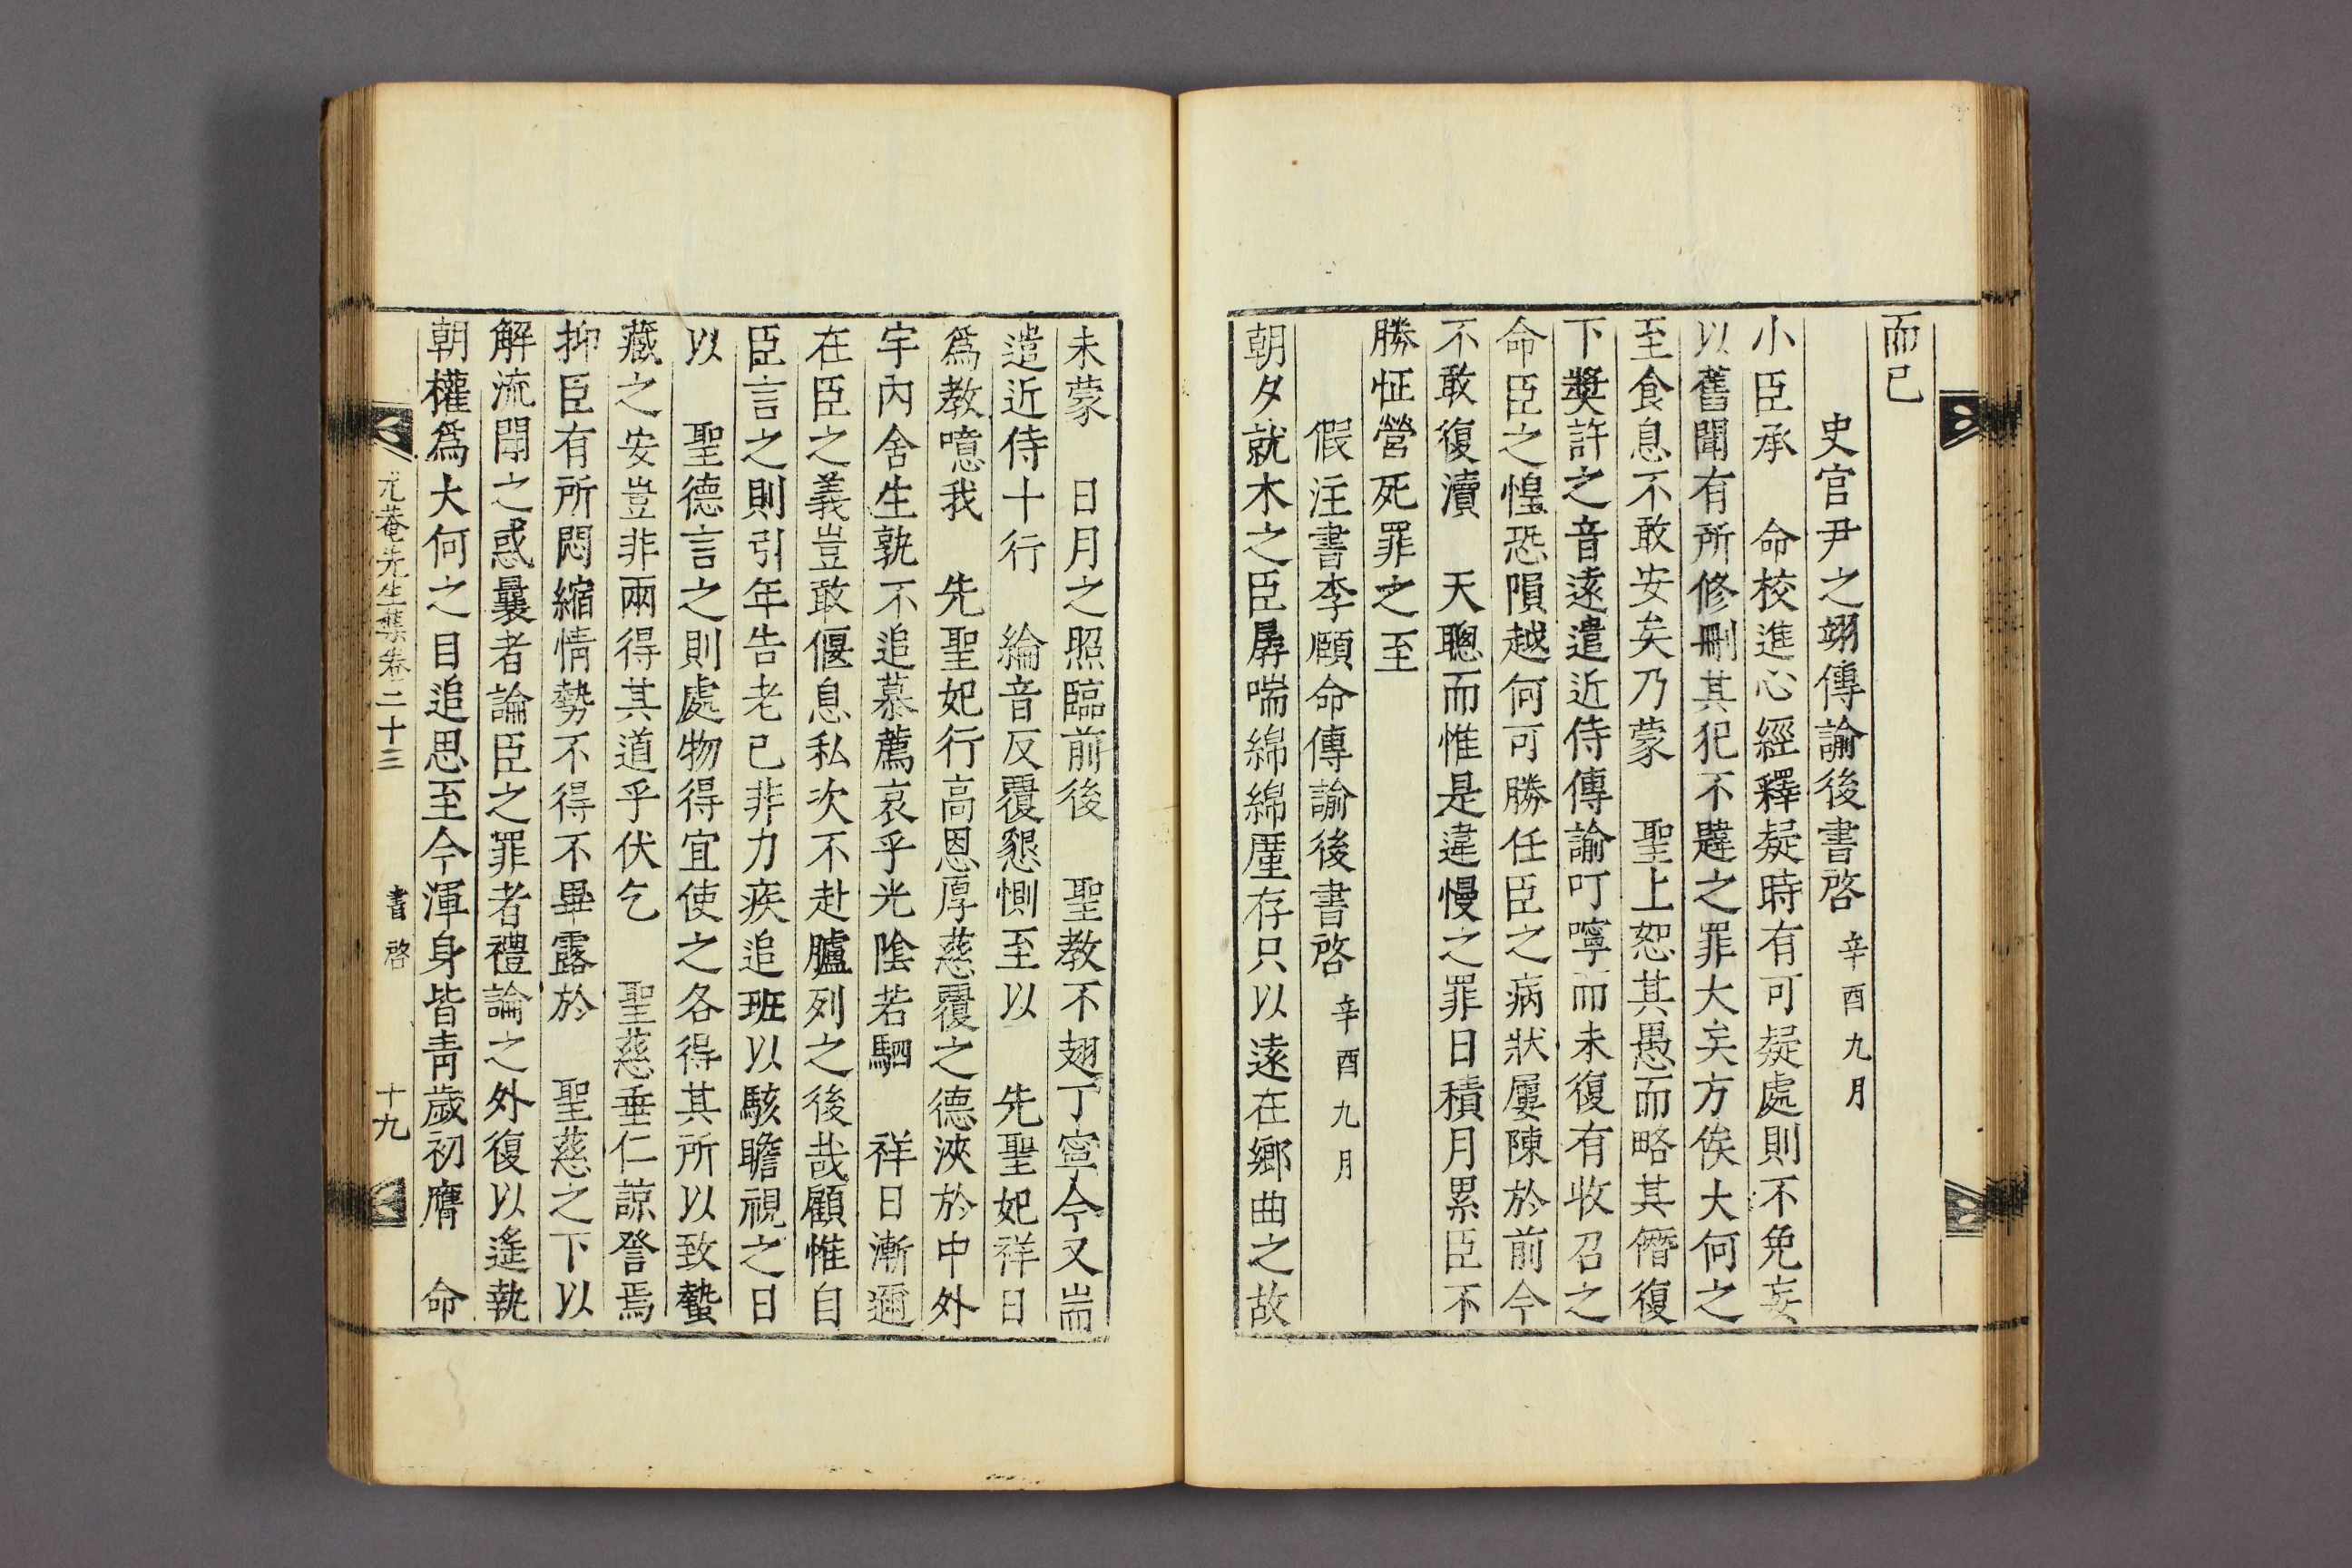 而已
史官尹之翊傳諭後書啓 辛酉九月
小臣承　命校進心經釋疑時有可疑處則不免妄
以舊聞有所修刪其犯不韙之罪大矣方俟大何之
至食息不敢安矣乃蒙　聖上恕其愚而略其僭復
下奬許之音遠遣近侍傳諭叮嚀而未復有收召之
命臣之惶恐隕越何可勝任臣之病狀屢陳於前今
不敢復瀆　天聰而惟是違慢之罪日積月累臣不
勝怔營死罪之至
假注書李願命傳諭後書啓 辛酉九月
朝夕就木之臣孱喘綿綿厪存只以遠在鄉曲之故
未蒙　日月之照臨前後　聖教不翅丁寧今又耑
遣近侍十行　綸音反覆懇惻至以　先聖妃祥日
爲教噫我　先聖妃行高恩厚慈覆之德浹於中外
宇內含生孰不追慕薦哀乎光陰若駟　祥日漸邇
在臣之義豈敢偃息私次不赴臚列之後哉顧惟自
臣言之則引年告老已非力疾追班以駭瞻視之日
以　聖德言之則處物得宜使之各得其所以致蟄
藏之安豈非兩得其道乎伏乞　聖慈垂仁諒詧焉
抑臣有所悶縮情勢不得不畢露於　聖慈之下以
解流聞之惑曩者論臣之罪者禮論之外復以遙執
朝權爲大何之目追思至今渾身皆靑歲初膺　命
尤菴先生集卷二十三　書啓　十九